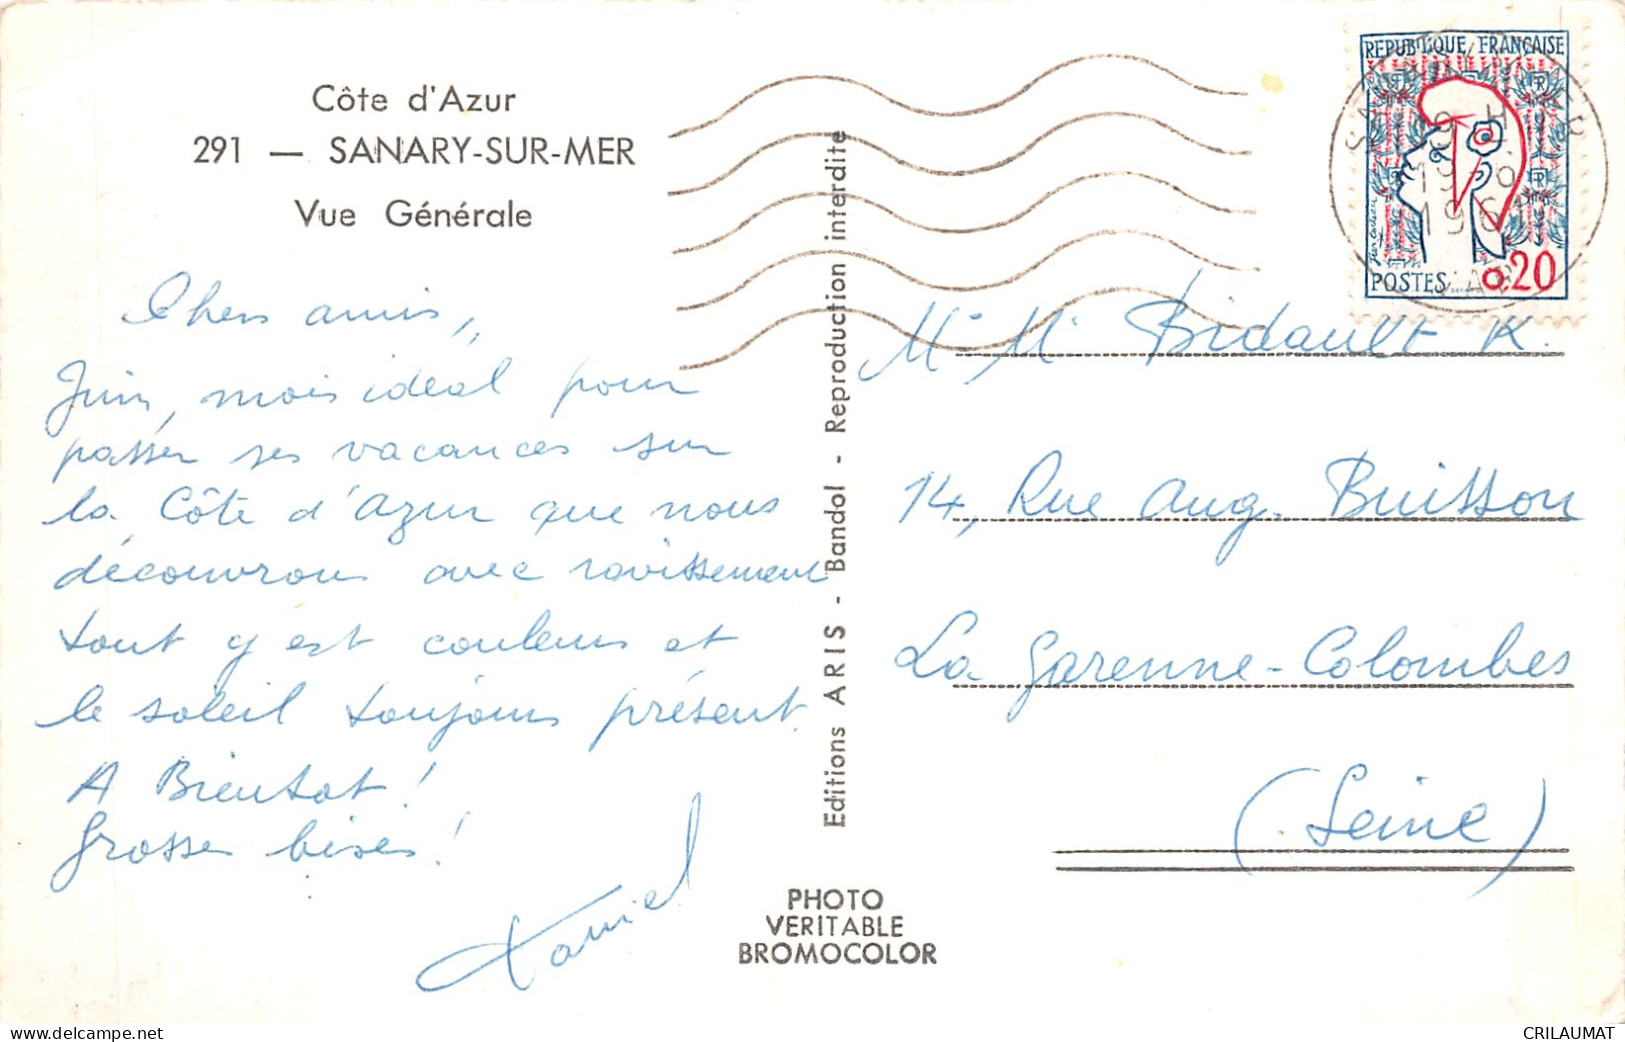 Côte d'Azur
291 — SANARY-SUR-MER
Vue Générale
Chers amis,
Juin, mois idéal pour
passer ses vacances sur
la Côte d'Azur que nous
découvrons avec ravissement
tout y est couleurs et
le soleil toujours présent.
A Bientot !
Grosses bises !
Daniel
Editions ARIS - Bandol - Reproduction interdite
PHOTO
VERITABLE
BROMOCOLOR
REPUBLIQUE FRANÇAISE
POSTES
0,20
VAR
Mr Me Bidault K.
14, Rue Aug. Buisson
La Garenne-Colombes
(Seine)
www.delcampe.net
CRILAUMAT